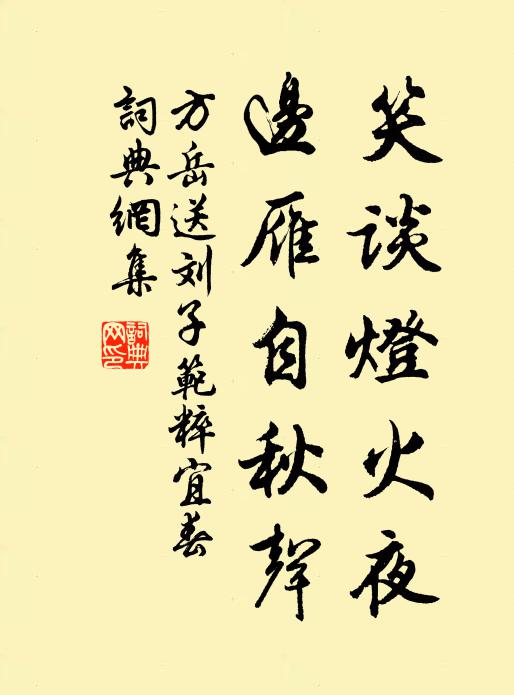 笑谈燈火夜
邊雁自秋聲
方岳送刘子範粹宜春
詞典網集
詞典
网印